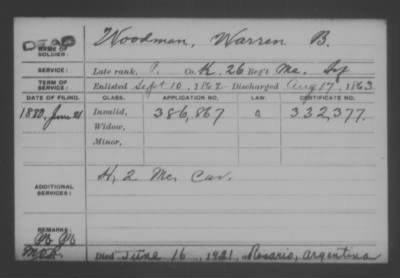 DEAD
NAME OF SOLDIER: Woodman, Warren B.
SERVICE: Late rank, P. Co. K, 26 Reg't Me. Inf
TERM OF SERVICE: Enlisted Sept 10, 1862 Discharged Aug 17, 1863.
DATE OF FILING. CLASS. APPLICATION NO. LAW. CERTIFICATE NO.
1880, June 21 Invalid, 386,867 332,377.
Widow,
Minor,
ADDITIONAL SERVICES: H, 2 Me. Cav.
REMARKS:
Died June 16, 1921, Rosario, Argentina